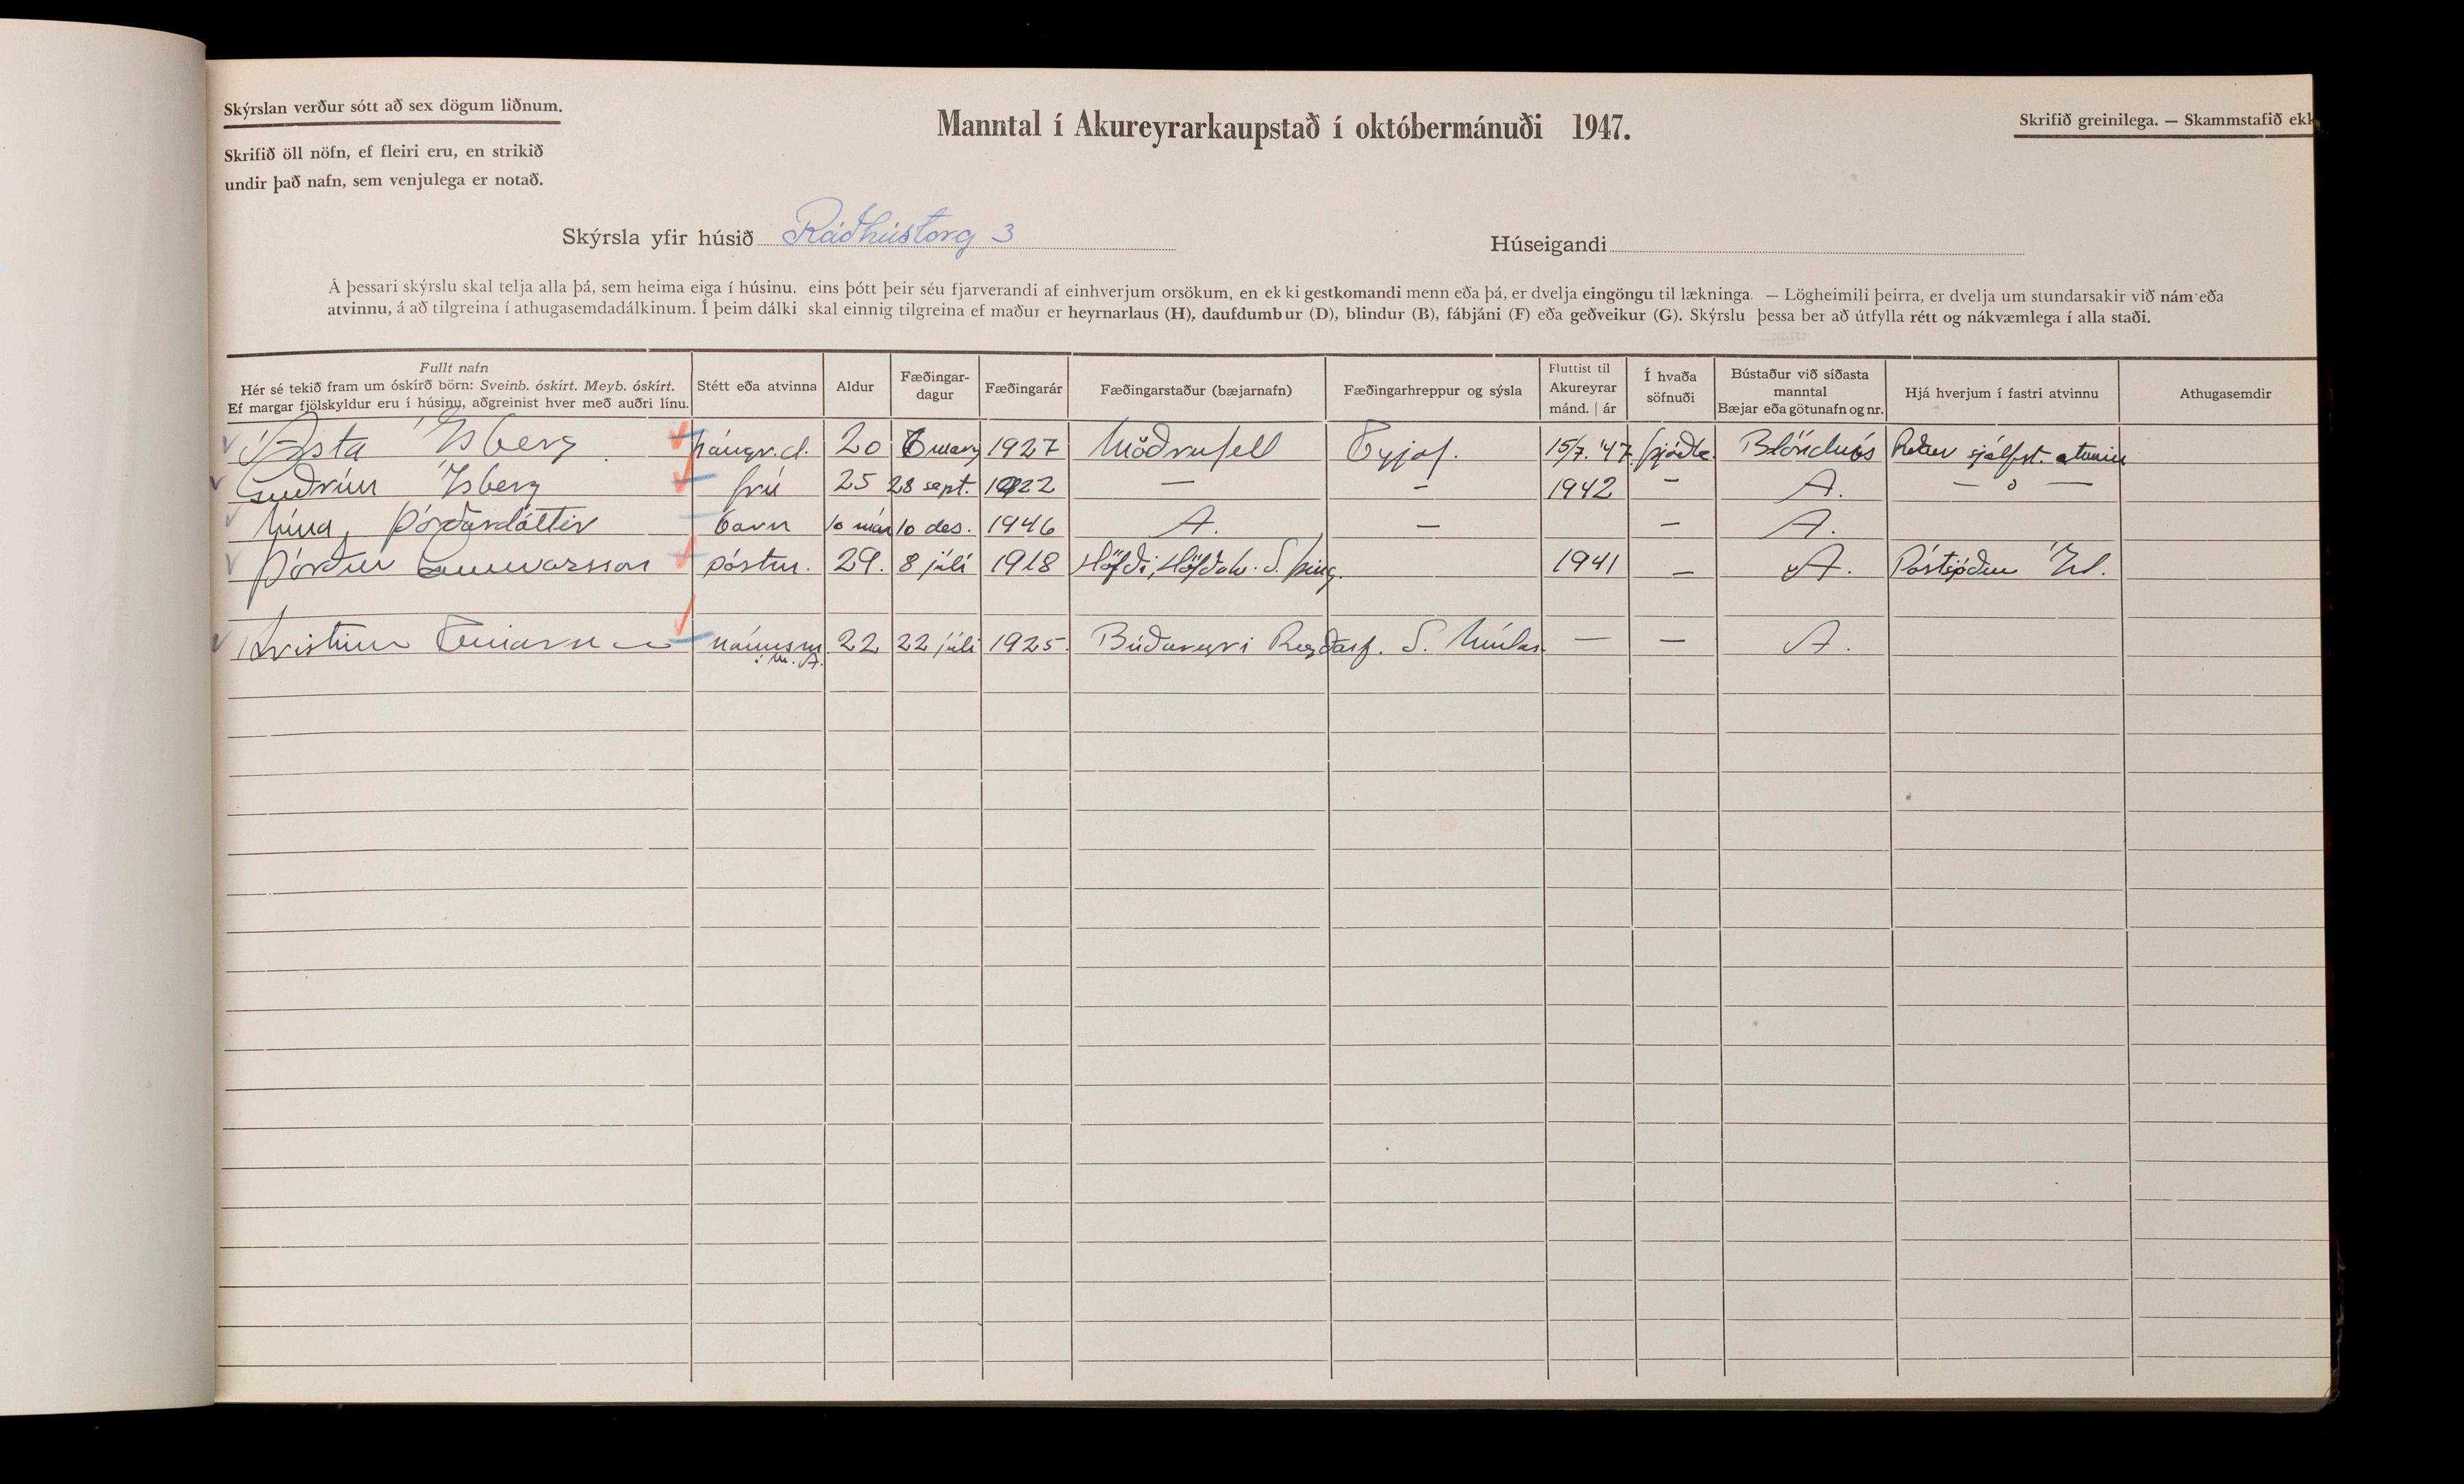 Skýrslan verður sótt að sex dögum liðnum.
Skrifið öll nöfn, ef fleiri eru, en strikið
undir það nafn, sem venjulega er notað.
Manntal í Akureyrarkaupstað í októbermánuði 1947.
Skrifið greinilega. — Skammstafið ekk
Skýrsla yfir húsið Ráðhústorg 3
Húseigandi
Á þessari skýrslu skal telja alla þá, sem heima eiga í húsinu, eins þótt þeir séu fjarverandi af einhverjum orsökum, en ekki gestkomandi menn eða þá, er dvelja eingöngu til lækninga. — Lögheimili þeirra, er dvelja um stundarsakir við nám eða
atvinnu, á að tilgreina í athugasemdadálkinum. Í þeim dálki skal einnig tilgreina ef maður er heyrnarlaus (H), daufdumbur (D), blindur (B), fábjáni (F) eða geðveikur (G). Skýrslu þessa ber að útfylla rétt og nákvæmlega í alla staði.
Fullt nafn
Hér sé tekið fram um óskírð börn: Sveinb. óskírt. Meyb. óskírt.
Ef margar fjölskyldur eru í húsinu, aðgreinist hver með auðri línu.
Stétt eða atvinna
Aldur
Fæðingar-
dagur
Fæðingarár
Fæðingarstaður (bæjarnafn)
Fæðingarhreppur og sýsla
Fluttist til
Akureyrar
mánd. | ár
Í hvaða
söfnuði
Bústaður við síðasta
manntal
Bæjar eða götunafn og nr.
Hjá hverjum í fastri atvinnu
Athugasemdir
Ásta Ísberg hárgr.d. 20 6 1927 Möðrufell Eyjaf. 15/7. '47 þjóðk. Blönduós Rekur sjálfst. atvinnu
Guðrún Ísberg frú 25 28 sept. 1922 — - 1942 - A. — o —
Þórðardóttir barn 10 mán 10 des. 1946 A. — — A.
Þórður Gunnarsson póstm. 29. 8 júlí 1918 Höfði, Höfðahv. S. þing. 1941 — A. Póstsjóður Ísl.
Kristinn námsm. 22 22 júlí 1925. Búðareyri Reyðarf. S. Múlas. — — A.
í M.A.